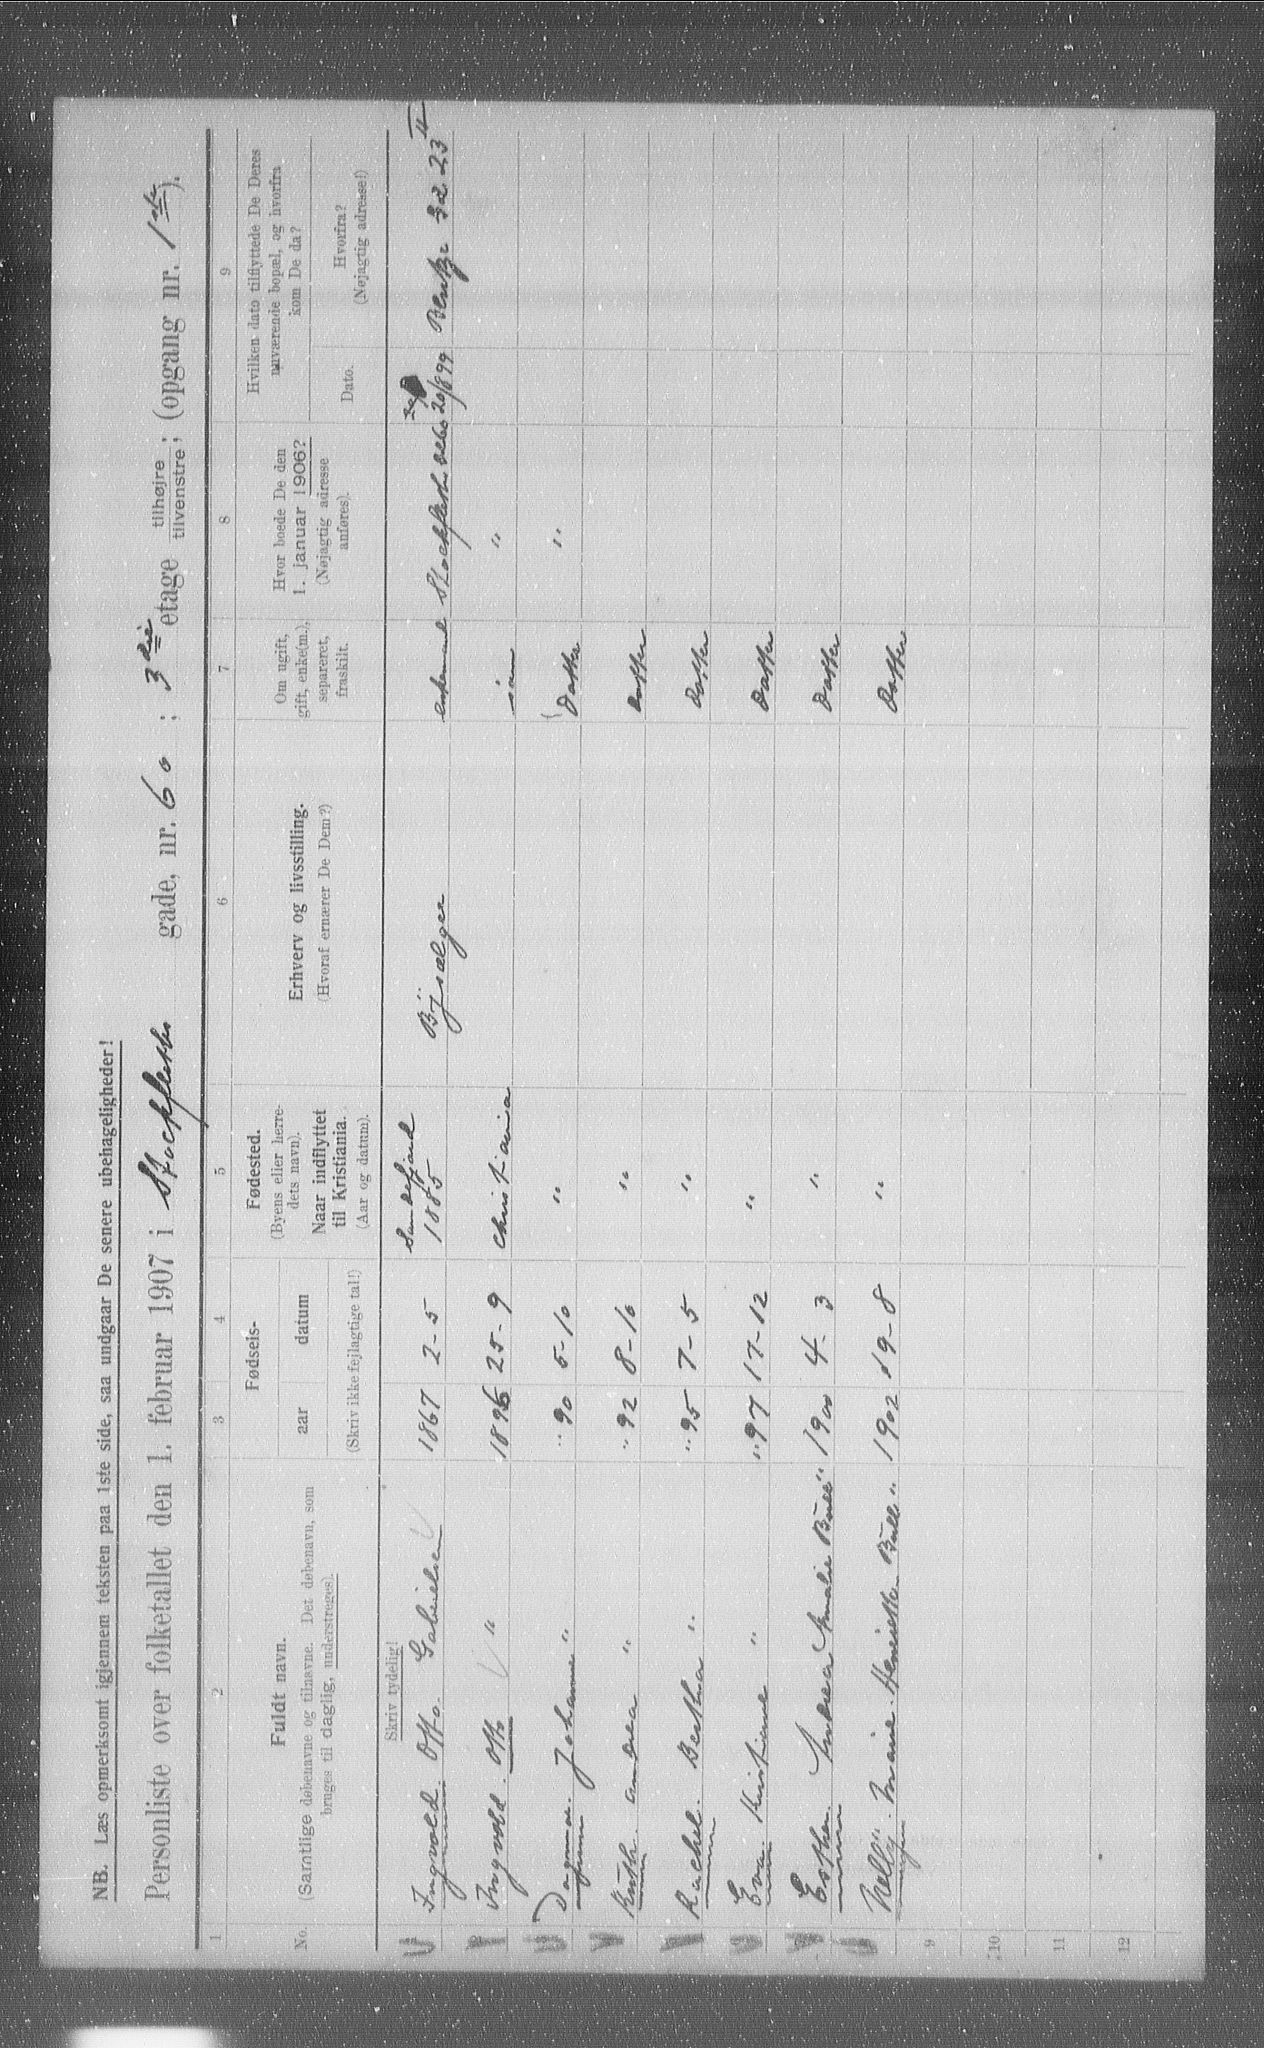 NB. Læs opmerksomt igjennem teksten paa 1ste side, saa undgaar De senere ubehageligheder!
Personliste over folketallet den 1. februar 1907 i Stockfleths gade, nr. 60 ; 3die etage tilhøjre ; tilvenstre; (opgang nr. 1ste).
1 2 3 4 5 6 7 8 9
No.
Fuldt navn.
(Samtlige døbenavne og tilnavne. Det døbenavn, som
bruges til daglig, understreges).
Fødsels-
aar datum
(Skriv ikke fejlagtige tal!)
Fødested.
(Byens eller herre-
dets navn).
Naar indflyttet
til Kristiania.
(Aar og datum).
Erhverv og livsstilling.
(Hvoraf ernærer De Dem?)
Om ugift,
gift, enke(m.),
separeret,
fraskilt.
Hvor boede De den
1. januar 1906?
(Nøjagtig adresse
anføres).
Hvilken dato tilflyttede De Deres
nuværende bopæl, og hvorfra
kom De da?
Dato.
Hvorfra?
(Nøjagtig adresse!)
Skriv tydelig!
Ingvold. Otto. Gabrielsen 1867 2-5 Sandefjord 1885 enkemand 20/8 99 23 II
Ingvold. Otto " 1896 25-9 Christiania søn "
Dagmar. Johanne " " 90 5-10 " Datter "
Ruth. Andrea " " 92 8-10 " Datter
Rachel. Bertha " " 95 7-5 " Datter
Eva. Kristiane " " 97 17-12 " Datter
Esther. Andrea Amalie Bull " 1900 4-3 " Datter
Nelly. Marie. Henriette. Bull " 1902 19-8 " Datter
9
10
11
12